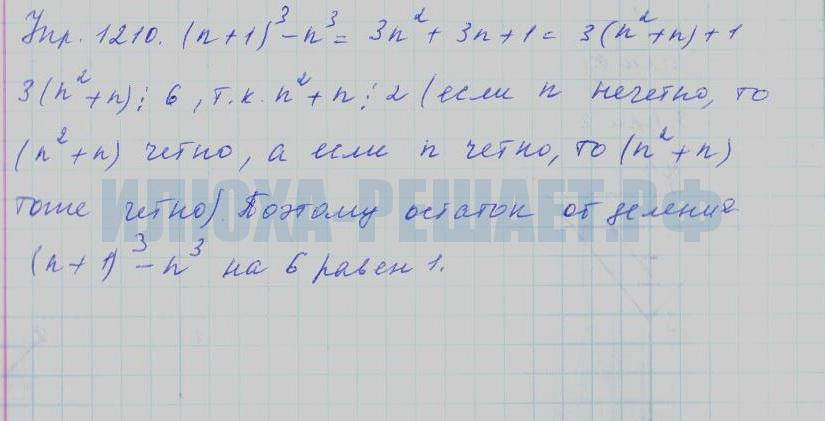 Упр. 1210. (n+1)³-n³ = 3n² + 3n + 1 = 3(n²+n)+1
3(n²+n)⋮6, т.к. n²+n⋮2 (если n нечетно, то
(n²+n) четно, а если n четно, то (n²+n)
тоже четно). Поэтому остаток от деления
ИЛЮХА-РЕШАЕТ.РФ
(n+1)³-n³ на 6 равен 1.